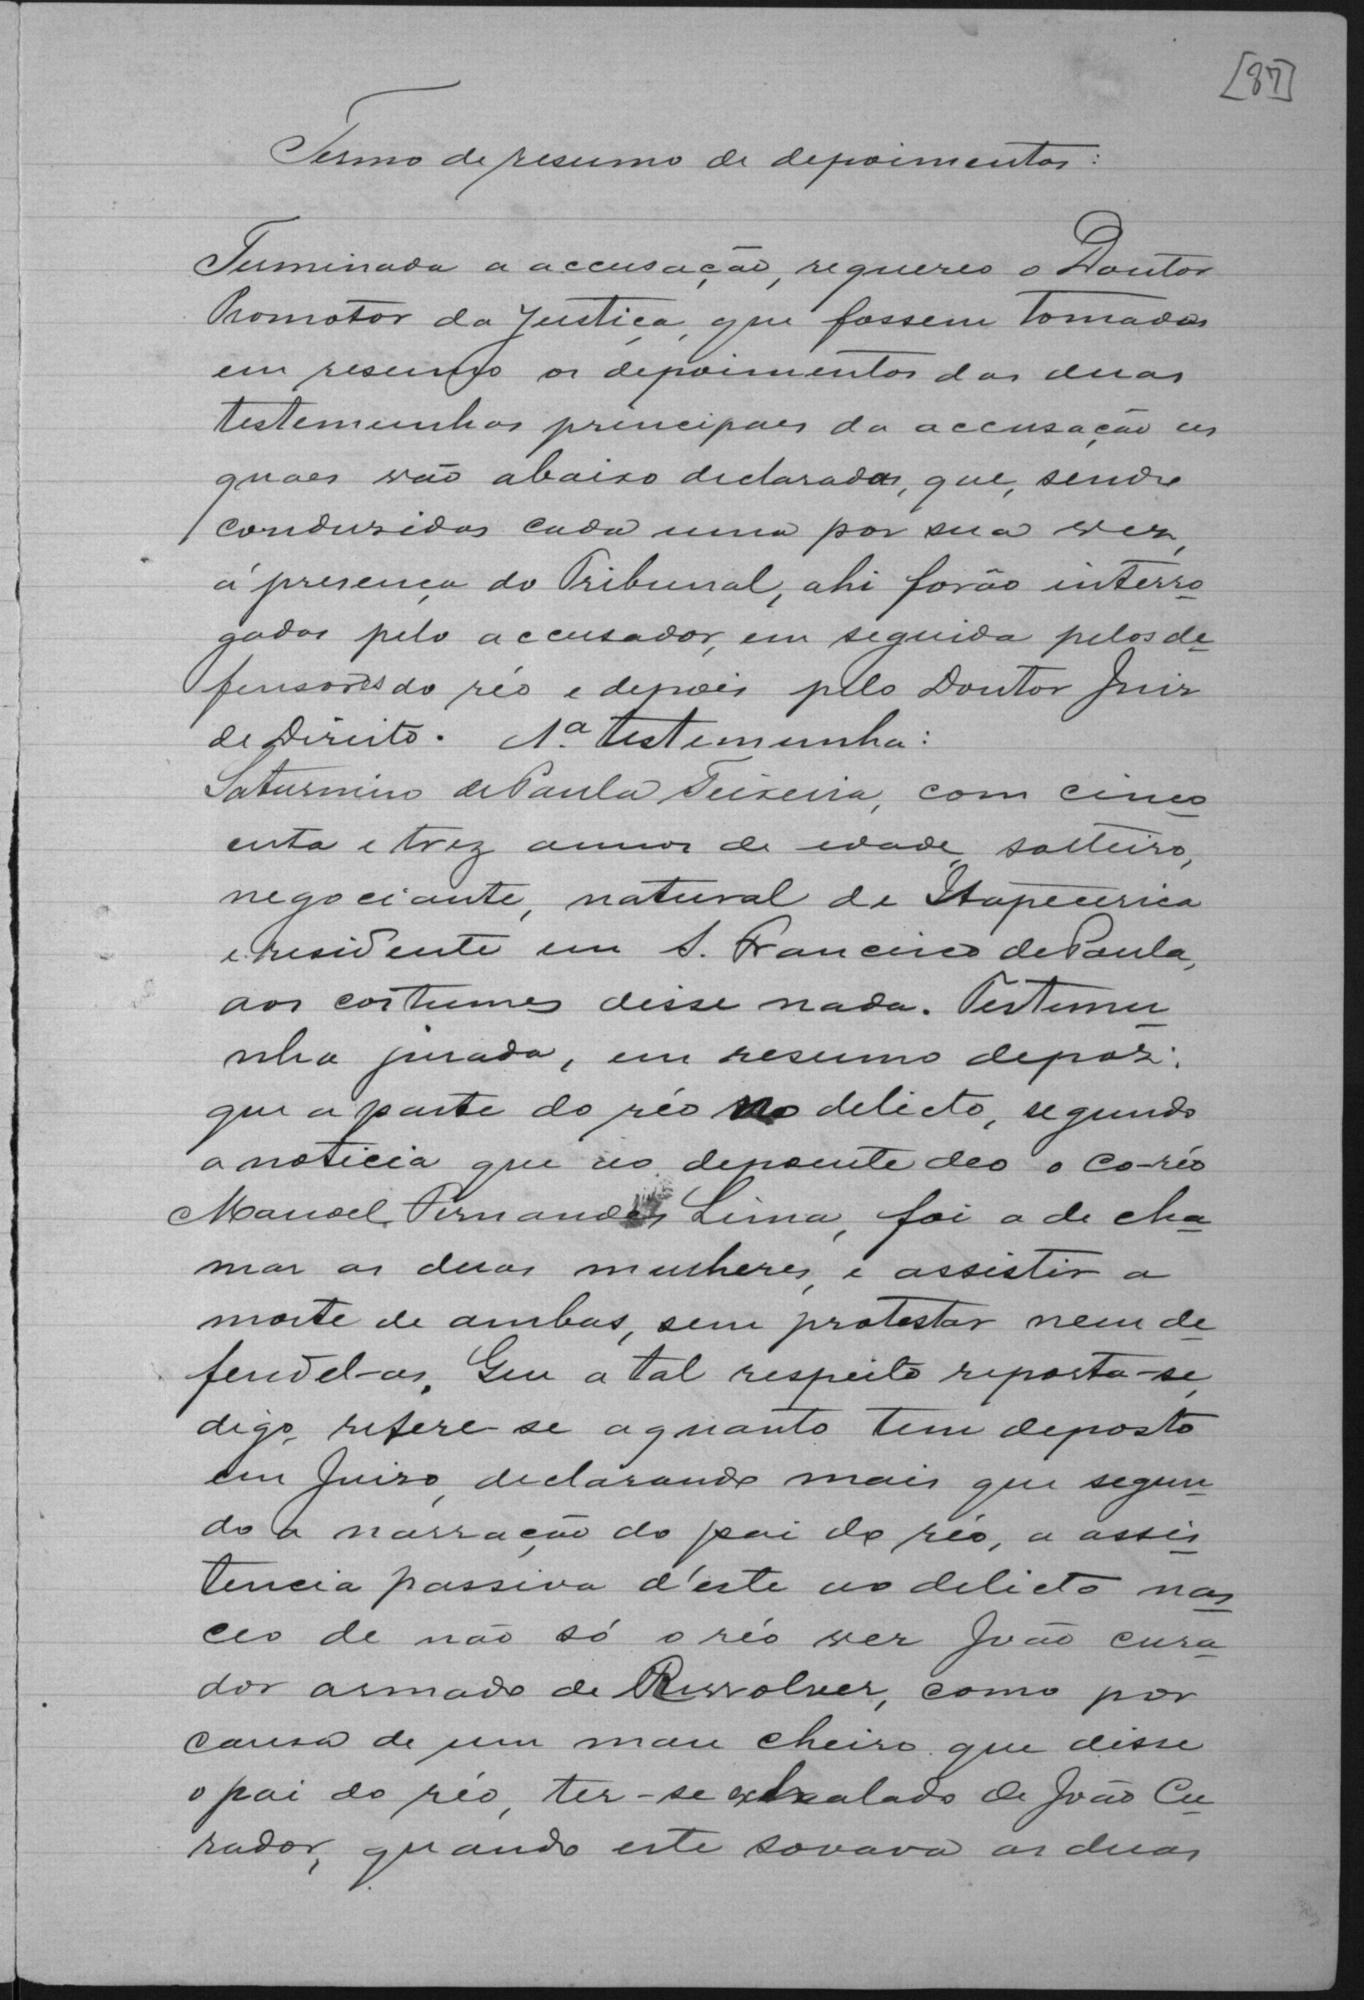 [87]
Termo de resumo de depoimentos:
Terminada a accusação, requereo o Doutor
Promotor da Justiça, que fossem tomados
em resumo os depoimentos das duas
testemunhas principaes da accusação as
quaes vão abaixo declaradas, que, sendo
conduzidas cada uma por sua vez,
á presença do Tribunal, ahi forão interro
gadas pelo accusador, em seguida pelos de
fensores do réo e depois pelo Doutor Juiz
de Direito. 1.ª testemunha:
Saturnino de Paula Teixeira, com cinco
enta e trez annos de edade, solteiro,
negociante, natural de Itapecerica
e residente em S. Francisco de Paula,
aos costumes disse nada. Testemu
nha jurada, em resumo depoz:
que a parte do réo no delicto, segundo
a noticia que ao depoente deo o co-réo
Manoel Fernandes Lima, foi a de cha
mar as duas mulheres, e assistir a
morte de ambas, sem protestar nem de
fendel-as. Que a tal respeito reporta-se,
digo, refere-se a quanto tem deposto
em Juizo, declarando mais que segun
do a narração do pai do réo, a assis
tencia passiva d'este ao delicto nas
ceo de não só o réo ver João cura
dor armado de Revolver, como por
causa de um mau cheiro que disse
o pai do réo, ter-se exhalado de João Cu
rador, quando este sovava as duas